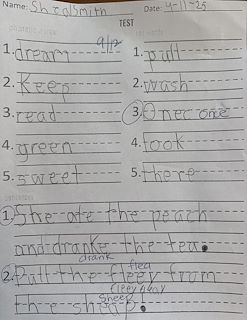 Name: Shealsmith Date: 9-11-25
TEST
9/12
1. dream 1. pull
2. Keep 2. wash
3. read 3. Onec one
4. green 4. look
5. sweet 5. there
1. She ate the peach
and dranke the tea.
drank flea
2. Pull the fleey from
the sheap!
sheep